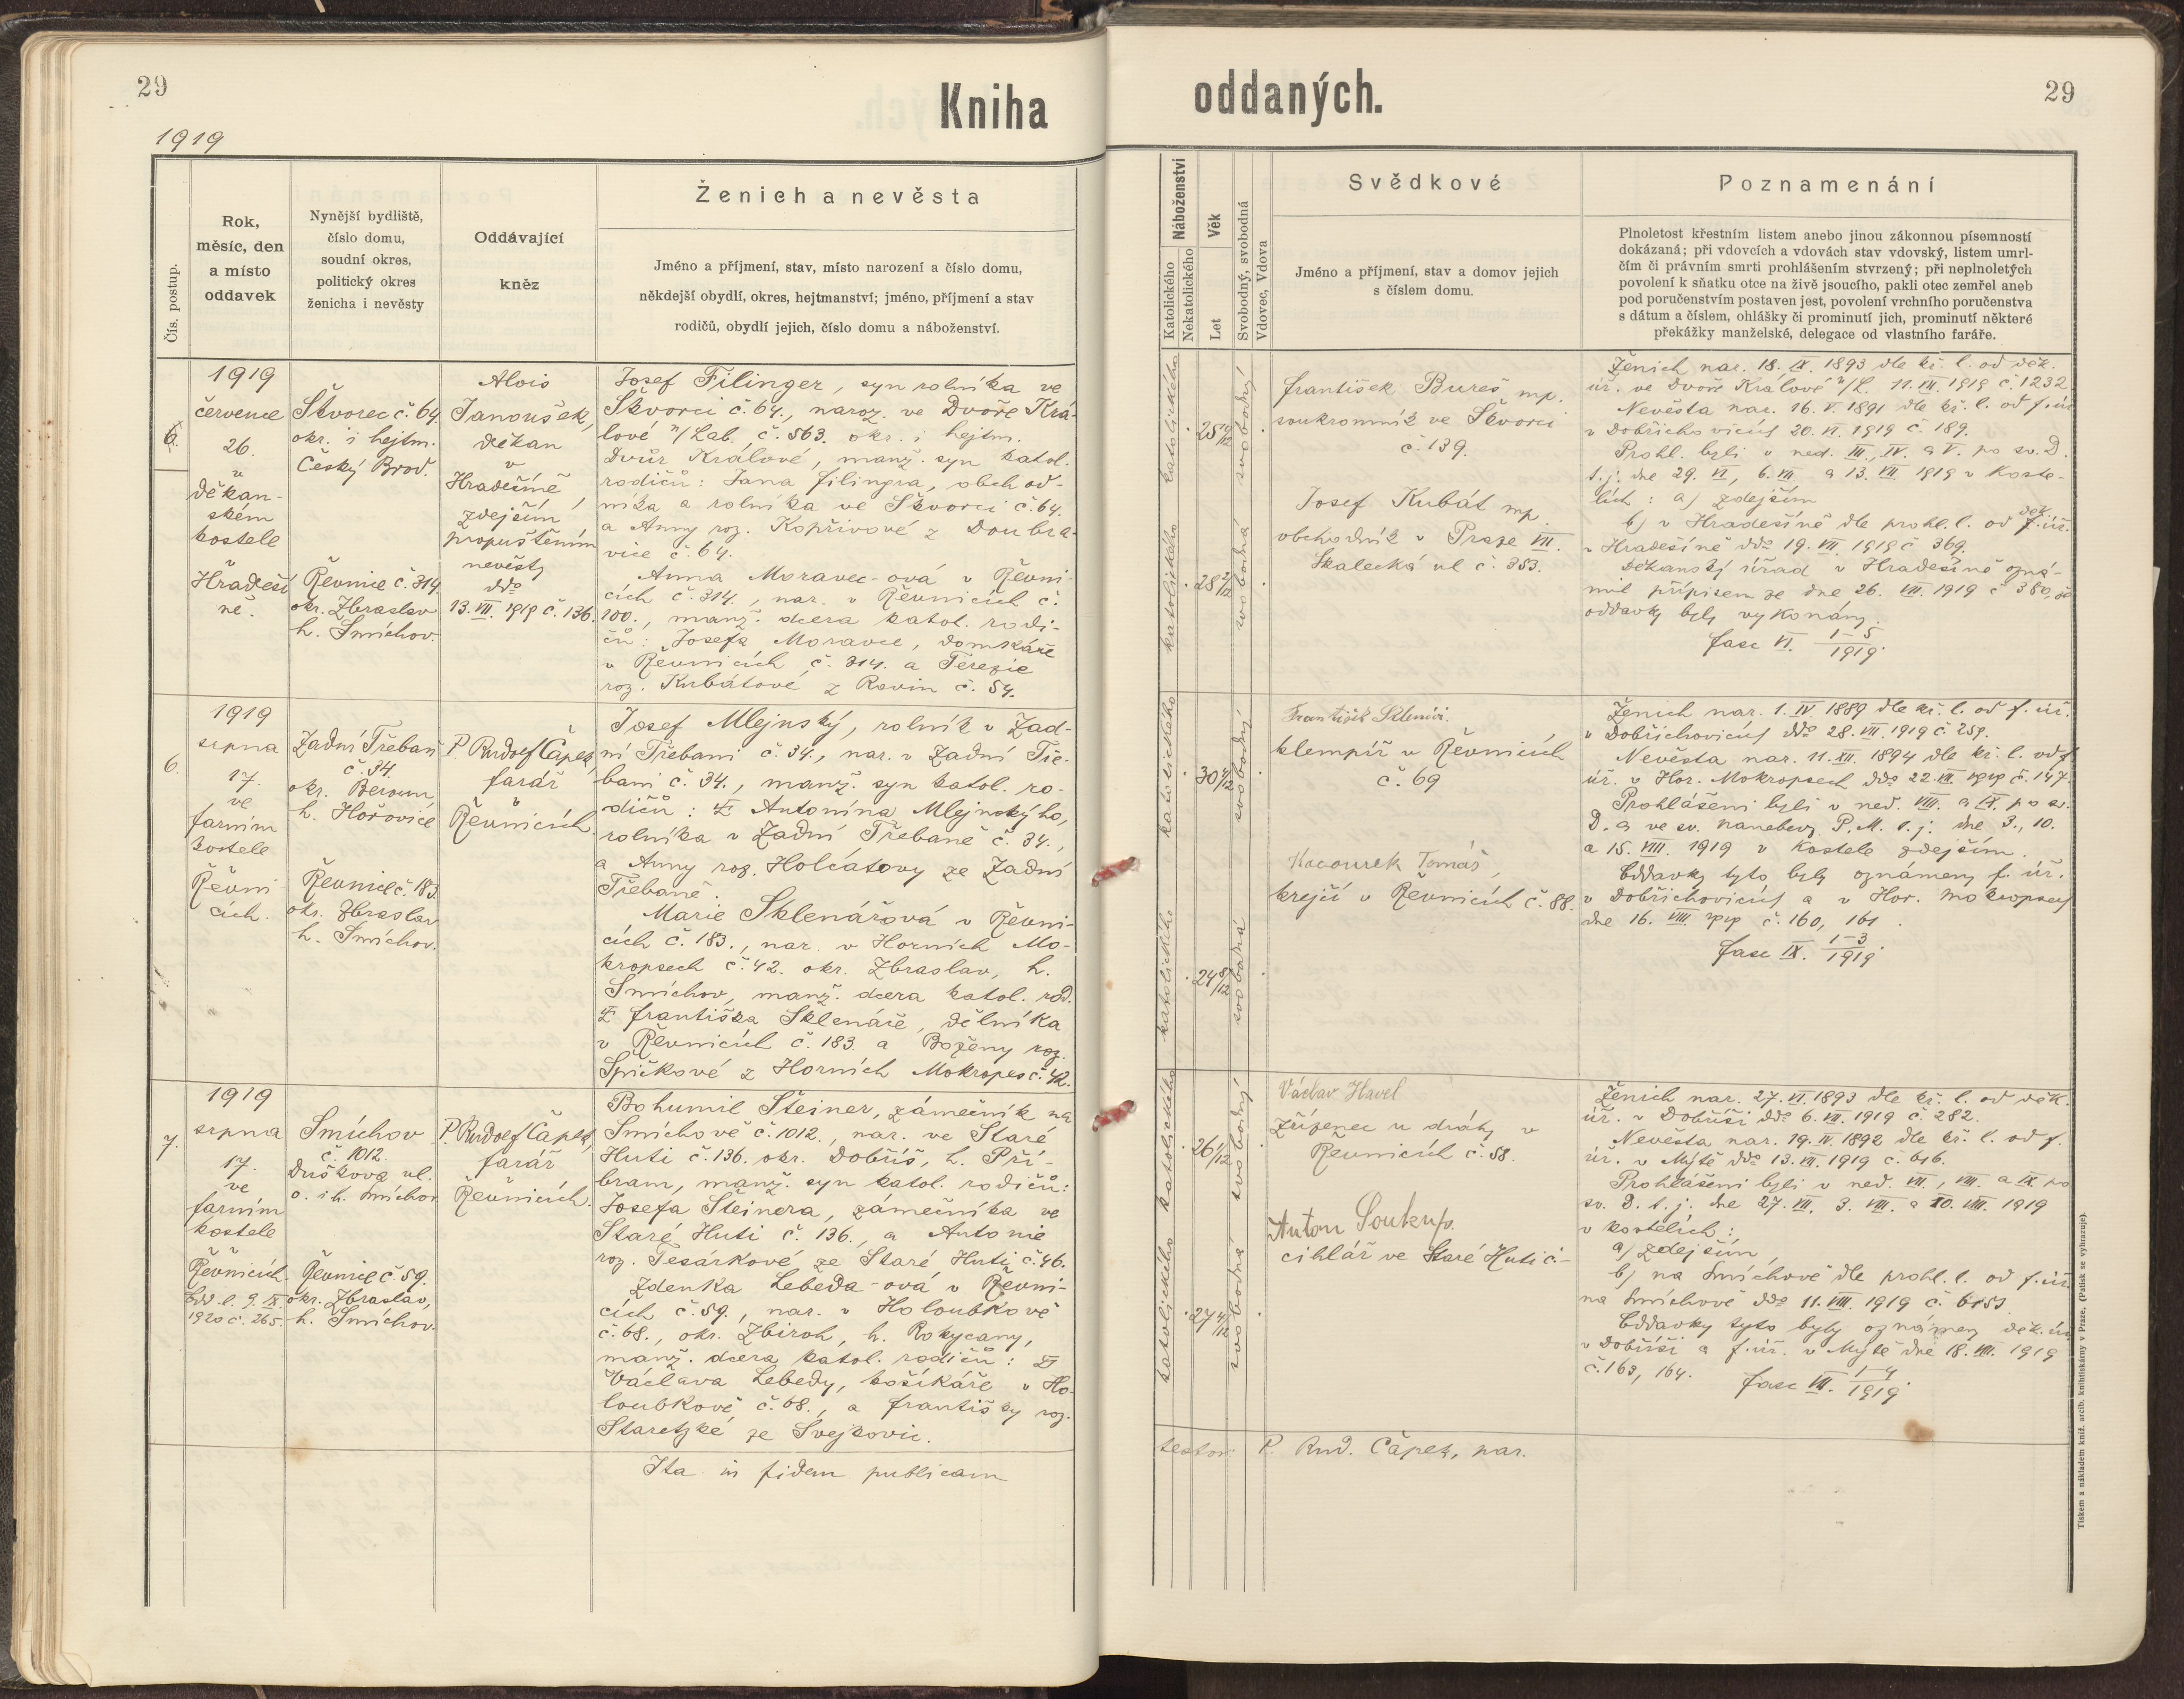 29
Kniha
1919
Čís. postup.
Rok,
měsíc, den
a místo
oddavek
Nynější bydliště,
číslo domu,
soudní okres,
politický okres
ženicha i nevěsty
Oddávající
kněz
Ženich a nevěsta
Jméno a příjmení, stav, místo narození a číslo domu,
někdejší obydlí, okres, hejtmanství; jméno, příjmení a stav
rodičů, obydlí jejich, číslo domu a náboženství.
6.
1919
července
26.
v
děkan-
ském
kostele
Hradeší
ně.
Škvorec č. 64.
okr. i hejtm.
Český Brod.
Řevnice č. 314.
okr. Zbraslav
h. Smíchov.
Alois
Janoušek,
děkan
v
Hradešíně,
zdejším
propuštěním
nevěsty
ddo
13. VII. 1919 č. 136.
Josef Filinger, syn rolníka ve
Škvorci č. 64., naroz. ve Dvoře Krá-
lové n/Lab. č. 563. okr. i hejtm.
Dvůr Králové, manž. syn katol.
rodičů: Jana Filingra, obchod-
níka a rolníka ve Škvorci č. 64.
a Anny roz. Kopřivové z Doubra-
vice č. 64.
Anna Moravec-ová v Řevni-
cích č. 314., nar. v Řevnicích č.
100., manž. dcera katol. rodi-
čů: Josefa Moravce, domkáře
v Řevnicích č. 314. a Terezie
roz. Kubátové z Rovin č. 54.
6.
1919
srpna
17.
ve
farním
kostele
Řevni-
cích.
Zadní Třebaň
č. 34.
okr. Beroun
h. Hořovice
Řevnice č. 183.
okr. Zbraslav
h. Smíchov.
P. Rudolf Čápek,
farář
Řevnicích.
Josef Mlejnský, rolník v Zad-
ní Třebani č. 34., nar. v Zadní Tře-
bani č. 34., manž. syn katol. ro-
dičů: Antonína Mlejnského,
rolníka v Zadní Třebani č. 34.,
a Anny roz. Holcatovy ze Zadní
Třebaně.
Marie Sklenářová v Řevni-
cích č. 183., nar. v Horních Mo-
kropsech č. 42. okr. Zbraslav, h.
Smíchov, manž. dcera katol. rod.
Františka Sklenáře, dělníka
v Řevnicích č. 183. a Boženy roz.
Špičkové z Horních Mokropes č. 42.
7.
1919
srpna
17.
ve
farním
kostele
Řevnicích.
Odd. l. 9. IX.
1920 č. 265.
Smíchov
č. 1012.
Duškova ul.
o. i h. Smíchov
Řevnice č. 59.
okr. Zbraslav,
h. Smíchov.
P. Rudolf Čápek,
farář
Řevnicích.
Bohumil Šteiner, zámečník na
Smíchově č. 1012., nar. ve Staré
Huti č. 136. okr. Dobříš, h. Pří-
bram, manž. syn katol. rodičů:
Josefa Šteinera, zámečníka ve
Staré Huti č. 136., a Antonie
roz. Tesárkové ze Staré Huti č. 46.
Zdenka Lebeda-ová v Řevni-
cích č. 59., nar. v Holoubkově
č. 68., okr. Zbiroh, h. Rokycany,
manž. dcera katol. rodičů:
Václava Lebedy, košíkáře v Ho-
loubkově č. 68., a Františky roz.
Staretzké ze Švejkovic.
Ita in fidem publicam
oddaných.
29
Náboženství
Katolického
Nekatolického
Věk
Let
Svobodný, svobodná
Vdovec, Vdova
Svědkové
Jméno a příjmení, stav a domov jejich
s číslem domu.
Poznamenání
Plnoletost křestním listem anebo jinou zákonnou písemností
dokázaná; při vdovcích a vdovách stav vdovský, listem umrl-
čím či právním smrti prohlášením stvrzený; při neplnoletých
povolení k sňatku otce na živě jsoucího, pakli otec zemřel aneb
pod poručenstvím postaven jest, povolení vrchního poručenstva
s dátum a číslem, ohlášky či prominutí jich, prominutí některé
překážky manželské, delegace od vlastního faráře.
katolického
28 10/12
svobodný
katolického
28 2/12
svobodná
František Bureš mp.
soukromník ve Škvorci
č. 139.
Josef Kubát mp.
obchodník v Praze VII.
Skalecká ul č. 353.
Ženich nar. 18. IX. 1893 dle kř. l. od děk.
úř. ve Dvoře Králové n/L. 11. VII. 1919 č. 1232
Nevěsta nar. 16. V. 1891 dle kř. l. od f. úř.
v Dobřichovicích 20. VI. 1919 č. 189.
Prohl. byli v ned. III., IV. a V. po sv. D.
t. j. dne 29. VI., 6. VII. a 13. VII. 1919 v koste-
lích: a) zdejším
b) v Hradešíně dle prohl. l. od děk. f. úř.
v Hradešíně ddo 19. VII. 1919 č. 369.
Děkanský úřad v Hradešíně ozná-
mil přípisem ze dne 26. VII. 1919 č 380, že
oddavky byly vykonány.
fasc VI. 1-5/1919.
katolického
30 4/12
svobodný
katolického
24 8/12
svobodná
František Sklenář.
klempíř v Řevnicích
č. 69
Kocourek Tomáš,
krejčí v Řevnicích č. 88.
Ženich nar. 1. IV. 1889 dle kř. l. od f. úř.
v Dobřichovicích ddo 28. VII. 1919 č. 259.
Nevěsta nar. 11. XII. 1894 dle kř. l. od f.
úř. v Hor. Mokropsech ddo 22. VII. 1919 č. 147.
Prohlášeni byli v ned. VIII. a IX. po sv.
D. a ve sv. Nanebevz. P. M. t. j. dne 3., 10.
a 15. VIII. 1919 v kostele zdejším.
Oddavky tyto byly oznámeny f. úř.
v Dobřichovicích a v Hor. Mokropsech
dne 16. VIII. 1919 č. 160, 161.
fasc IX. 1-3/1919.
katolického
26 1/12
svobodný
katolického
27 4/12
svobodná
Václav Havel
zřízenec u dráhy v
Řevnicích č. 58.
Anton Soukup.
cihlář ve Staré Huti č.-
Ženich nar. 27. VI. 1893 dle kř. l. od děk.
úř. v Dobříši ddo 6. VII. 1919 č. 282.
Nevěsta nar. 19. IV. 1892 dle kř. l. od f.
úř. v Mýtě ddo 13. VII. 1919 č. 616.
Prohlášeni byli v ned. VII., VIII. a IX. po
sv. D. t. j. dne 27. VII., 3. VIII. a 10. VIII. 1919
v kostelích:
a) zdejším,
b) na Smíchově dle prohl. l. od f. úř.
na Smíchově ddo 11. VIII. 1919 č.
Oddavky tyto byly oznámeny děk. úř.
v Dobříši a f. úř. v Mýtě dne 18. VIII. 1919
č. 163, 164. fasc VII. 1-4/1919.
testor P. Rud. Čápek, par.
Tiskem a nákladem kníž. arcib. knihtiskárny v Praze. (Patisk se vyhrazuje).